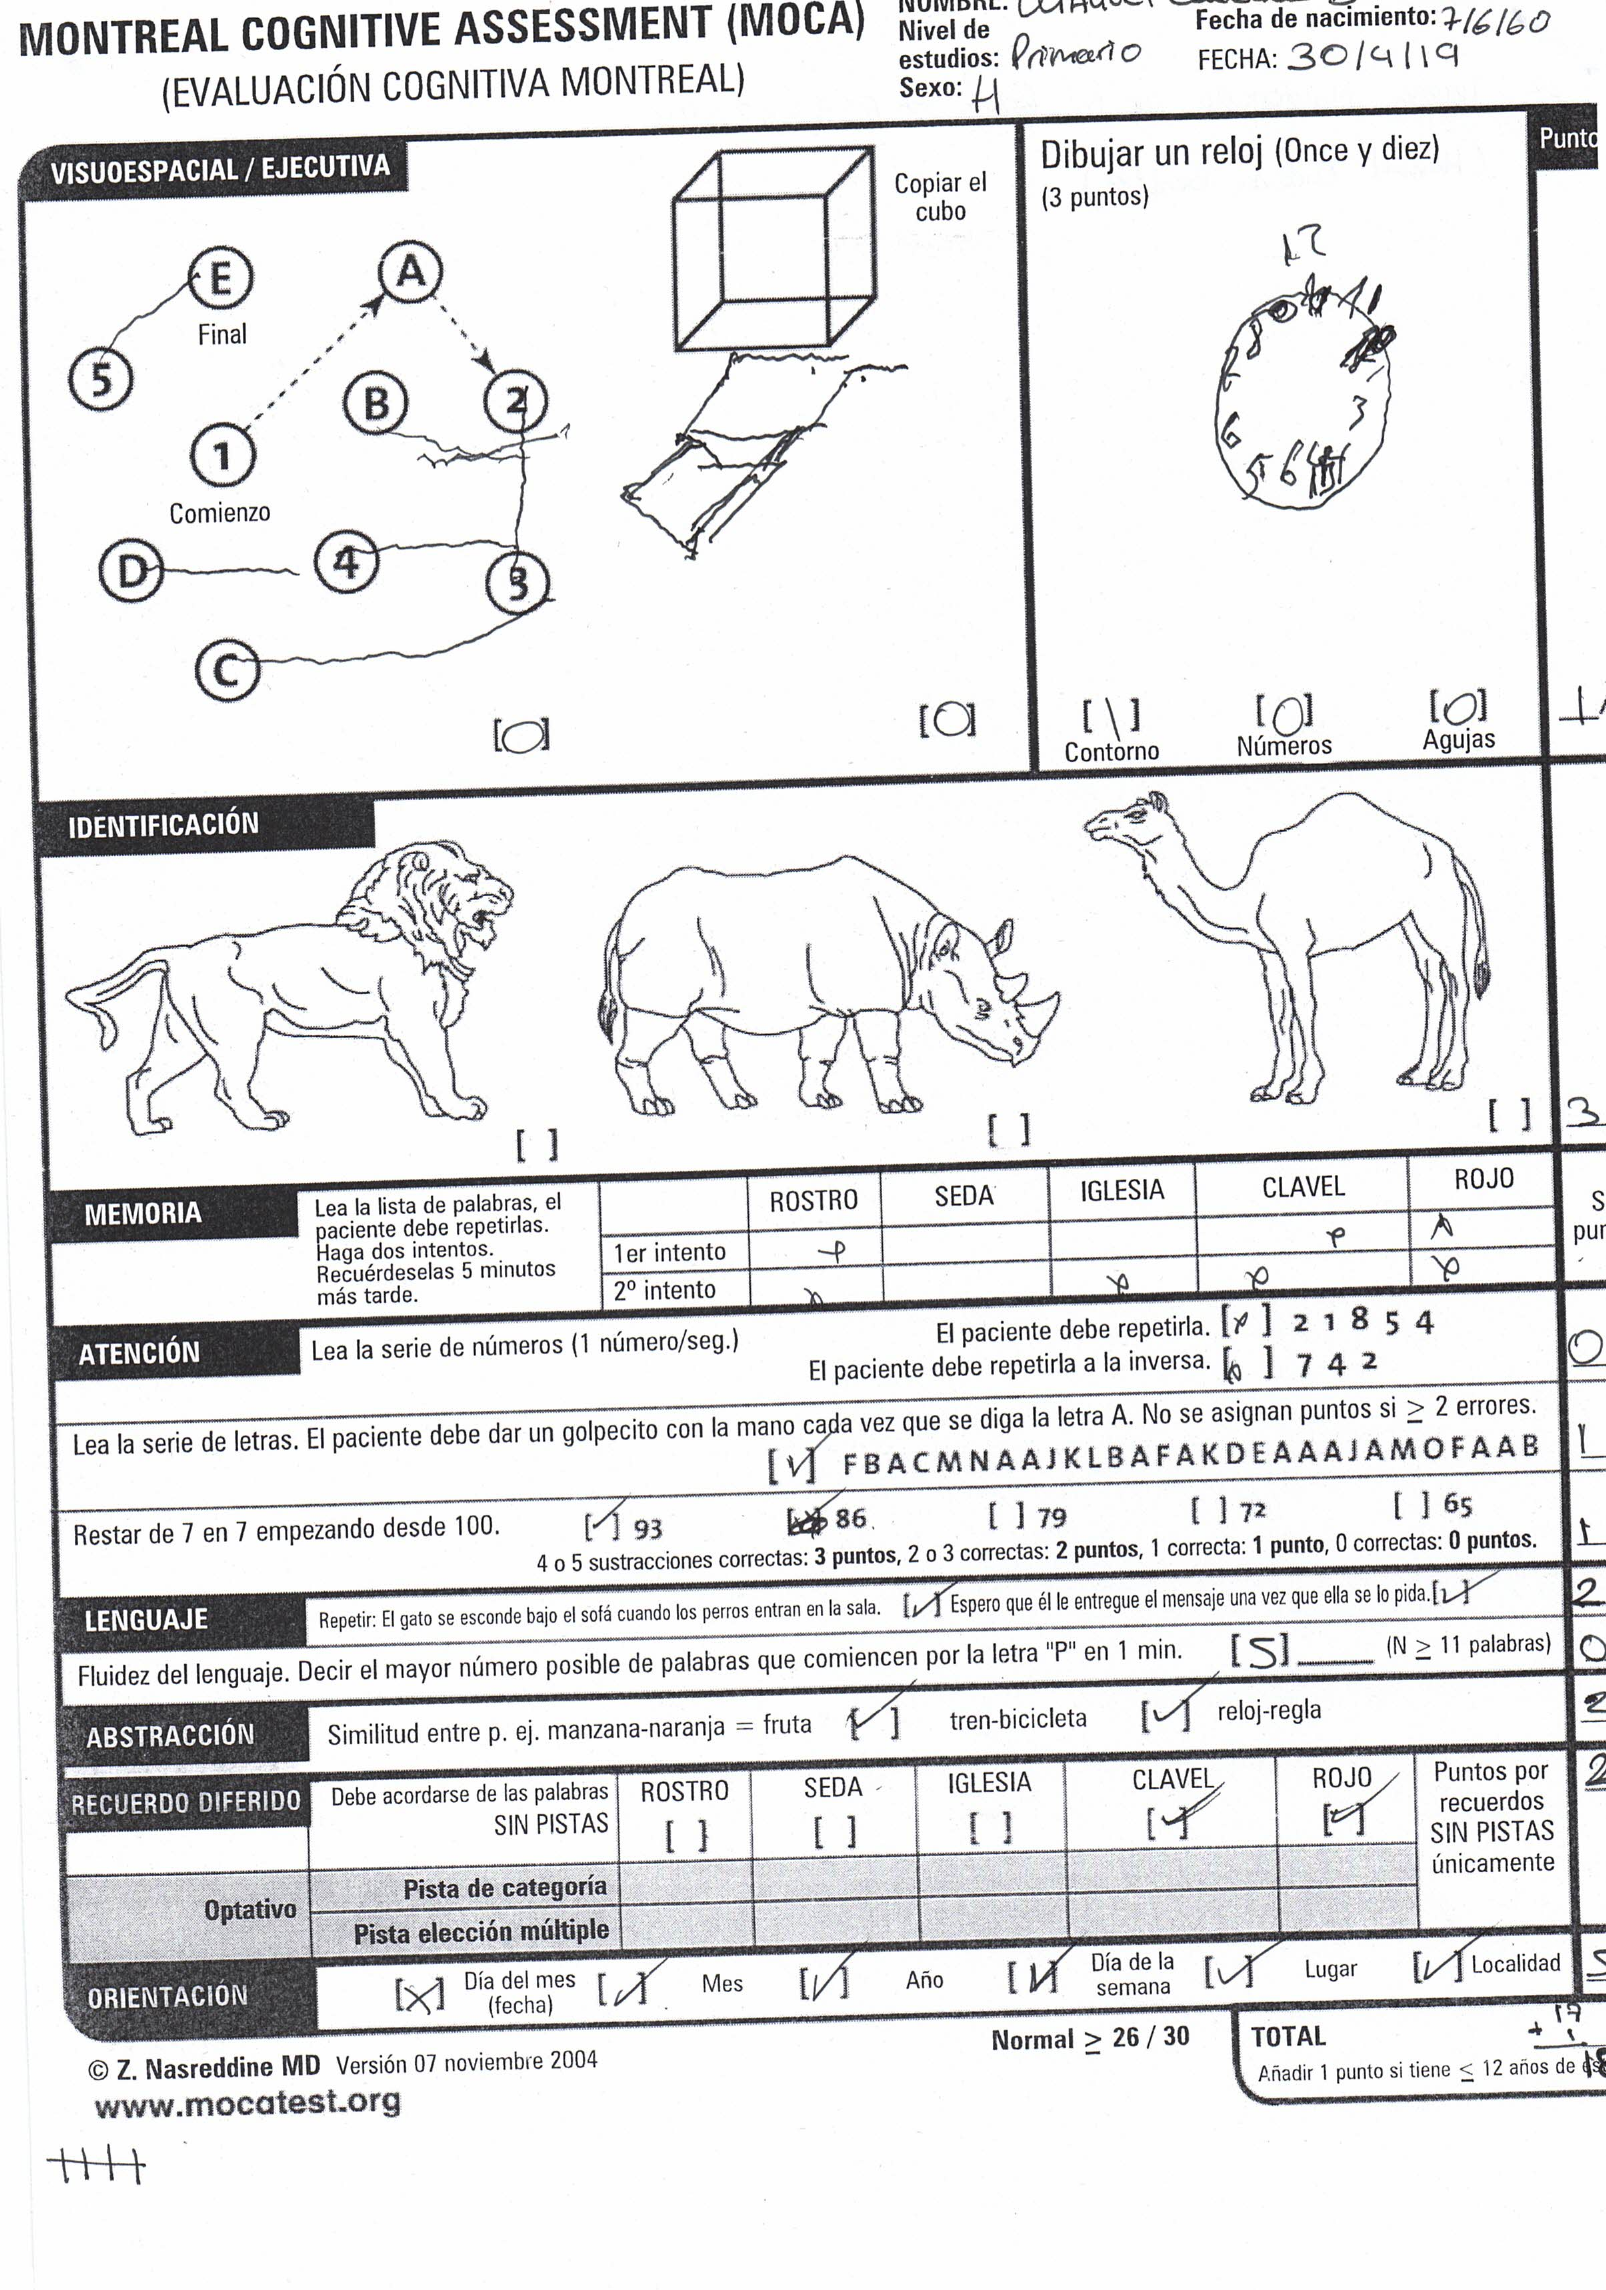 MONTREAL COGNITIVE ASSESSMENT (MOCA)
(EVALUACIÓN COGNITIVA MONTREAL)
NOMBRE:
Nivel de
estudios: Primario
Sexo: H
Fecha de nacimiento: 7/6/60
FECHA: 30/4/19
VISUOESPACIAL / EJECUTIVA
Copiar el
cubo
Dibujar un reloj (Once y diez)
(3 puntos)
Punto
E
Final
A
5
B
2
1
Comienzo
D
4
3
C
12
11
8
3
6
5 6
[0]
[0]
[\] [0] [0]
Contorno Números Agujas
1
IDENTIFICACIÓN
[ ] [ ] [ ] 3
MEMORIA
Lea la lista de palabras, el
paciente debe repetirlas.
Haga dos intentos.
Recuérdeselas 5 minutos
más tarde.
ROSTRO SEDA IGLESIA CLAVEL ROJO
1er intento
2º intento
S
pun
ATENCIÓN
Lea la serie de números (1 número/seg.)
El paciente debe repetirla. [ ] 2 1 8 5 4
El paciente debe repetirla a la inversa. [ ] 7 4 2
0
Lea la serie de letras. El paciente debe dar un golpecito con la mano cada vez que se diga la letra A. No se asignan puntos si ≥ 2 errores.
[✓] F B A C M N A A J K L B A F A K D E A A A J A M O F A A B 1
Restar de 7 en 7 empezando desde 100. [✓] 93 [ ] 86 [ ] 79 [ ] 72 [ ] 65
4 o 5 sustracciones correctas: 3 puntos, 2 o 3 correctas: 2 puntos, 1 correcta: 1 punto, 0 correctas: 0 puntos. 1
LENGUAJE
Repetir: El gato se esconde bajo el sofá cuando los perros entran en la sala. [✓] Espero que él le entregue el mensaje una vez que ella se lo pida. [✓] 2
Fluidez del lenguaje. Decir el mayor número posible de palabras que comiencen por la letra "P" en 1 min. [5]____ (N ≥ 11 palabras) 0
ABSTRACCIÓN
Similitud entre p. ej. manzana-naranja = fruta [✓] tren-bicicleta [✓] reloj-regla 2
RECUERDO DIFERIDO
Debe acordarse de las palabras
SIN PISTAS
ROSTRO SEDA IGLESIA CLAVEL ROJO
[ ] [ ] [ ] [✓] [✓]
Puntos por
recuerdos
SIN PISTAS
únicamente
2
Optativo
Pista de categoría
Pista elección múltiple
ORIENTACIÓN
[X] Día del mes
(fecha)
[✓] Mes [✓] Año [✓] Día de la
semana
[✓] Lugar [✓] Localidad 5
© Z. Nasreddine MD Versión 07 noviembre 2004
www.mocatest.org
Normal ≥ 26 / 30
TOTAL
17
+ 1
18
Añadir 1 punto si tiene ≤ 12 años de es